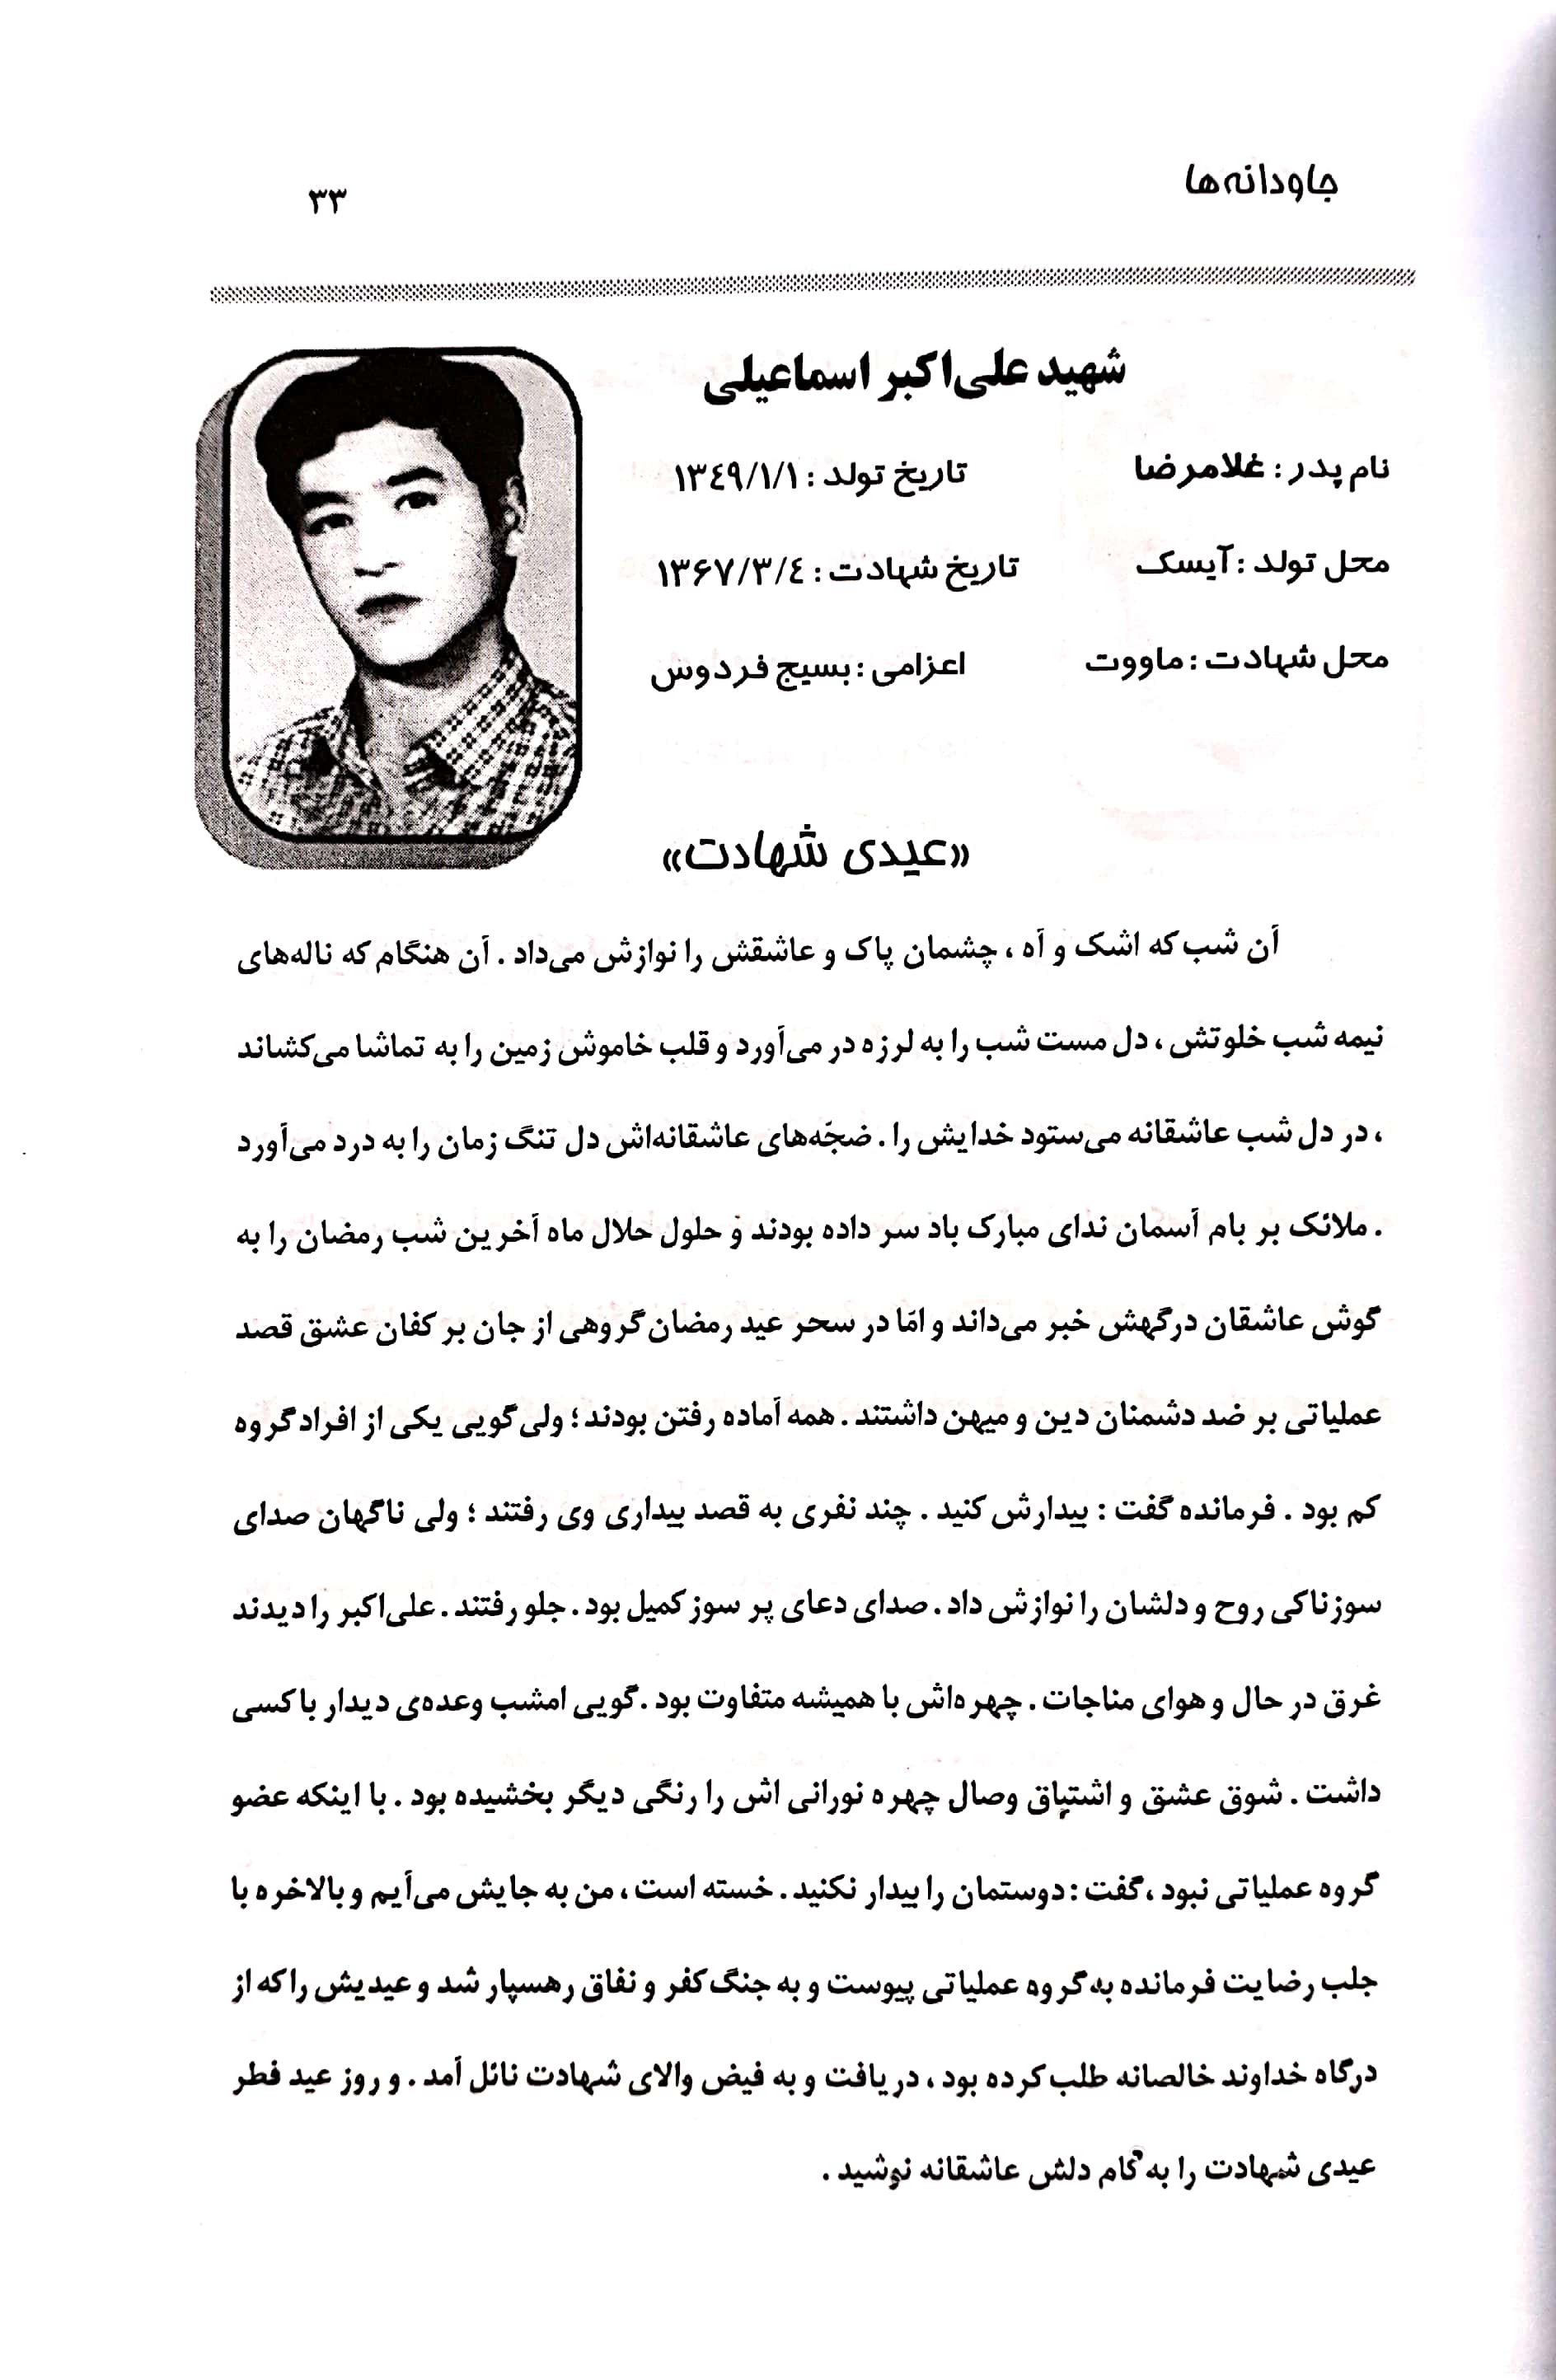 جاودانه‌ها
۳۳
شهید علی‌اکبر اسماعیلی
نام پدر : غلامرضا
تاریخ تولد : ۱۳٤۹/۱/۱
محل تولد : آیسک
تاریخ شهادت : ۱۳۶۷/۳/٤
محل شهادت : ماووت
اعزامی : بسیج فردوس
«عیدی شهادت»
آن شب که اشک و آه ، چشمان پاک و عاشقش را نوازش می‌داد . آن هنگام که ناله‌های
نیمه شب خلوتش ، دل مست شب را به لرزه در می‌آورد و قلب خاموش زمین را به تماشا می‌کشاند
، در دل شب عاشقانه می‌ستود خدایش را . ضجّه‌های عاشقانه‌اش دل تنگ زمان را به درد می‌آورد
. ملائک بر بام آسمان ندای مبارک باد سر داده بودند و حلول حلال ماه آخرین شب رمضان را به
گوش عاشقان درگهش خبر می‌داند و امّا در سحر عید رمضان گروهی از جان بر کفان عشق قصد
عملیاتی بر ضد دشمنان دین و میهن داشتند . همه آماده رفتن بودند ؛ ولی گویی یکی از افراد گروه
کم بود . فرمانده گفت : بیدارش کنید . چند نفری به قصد بیداری وی رفتند ؛ ولی ناگهان صدای
سوزناکی روح و دلشان را نوازش داد . صدای دعای پر سوز کمیل بود . جلو رفتند . علی‌اکبر را دیدند
غرق در حال و هوای مناجات . چهره‌اش با همیشه متفاوت بود . گویی امشب وعده‌ی دیدار با کسی
داشت . شوق عشق و اشتیاق وصال چهره نورانی اش را رنگی دیگر بخشیده بود . با اینکه عضو
گروه عملیاتی نبود ، گفت : دوستمان را بیدار نکنید . خسته است ، من به جایش می‌آیم و بالاخره با
جلب رضایت فرمانده به گروه عملیاتی پیوست و به جنگ کفر و نفاق رهسپار شد و عیدیش را که از
درگاه خداوند خالصانه طلب کرده بود ، دریافت و به فیض والای شهادت نائل آمد . و روز عید فطر
عیدی شهادت را به کام دلش عاشقانه نوشید .